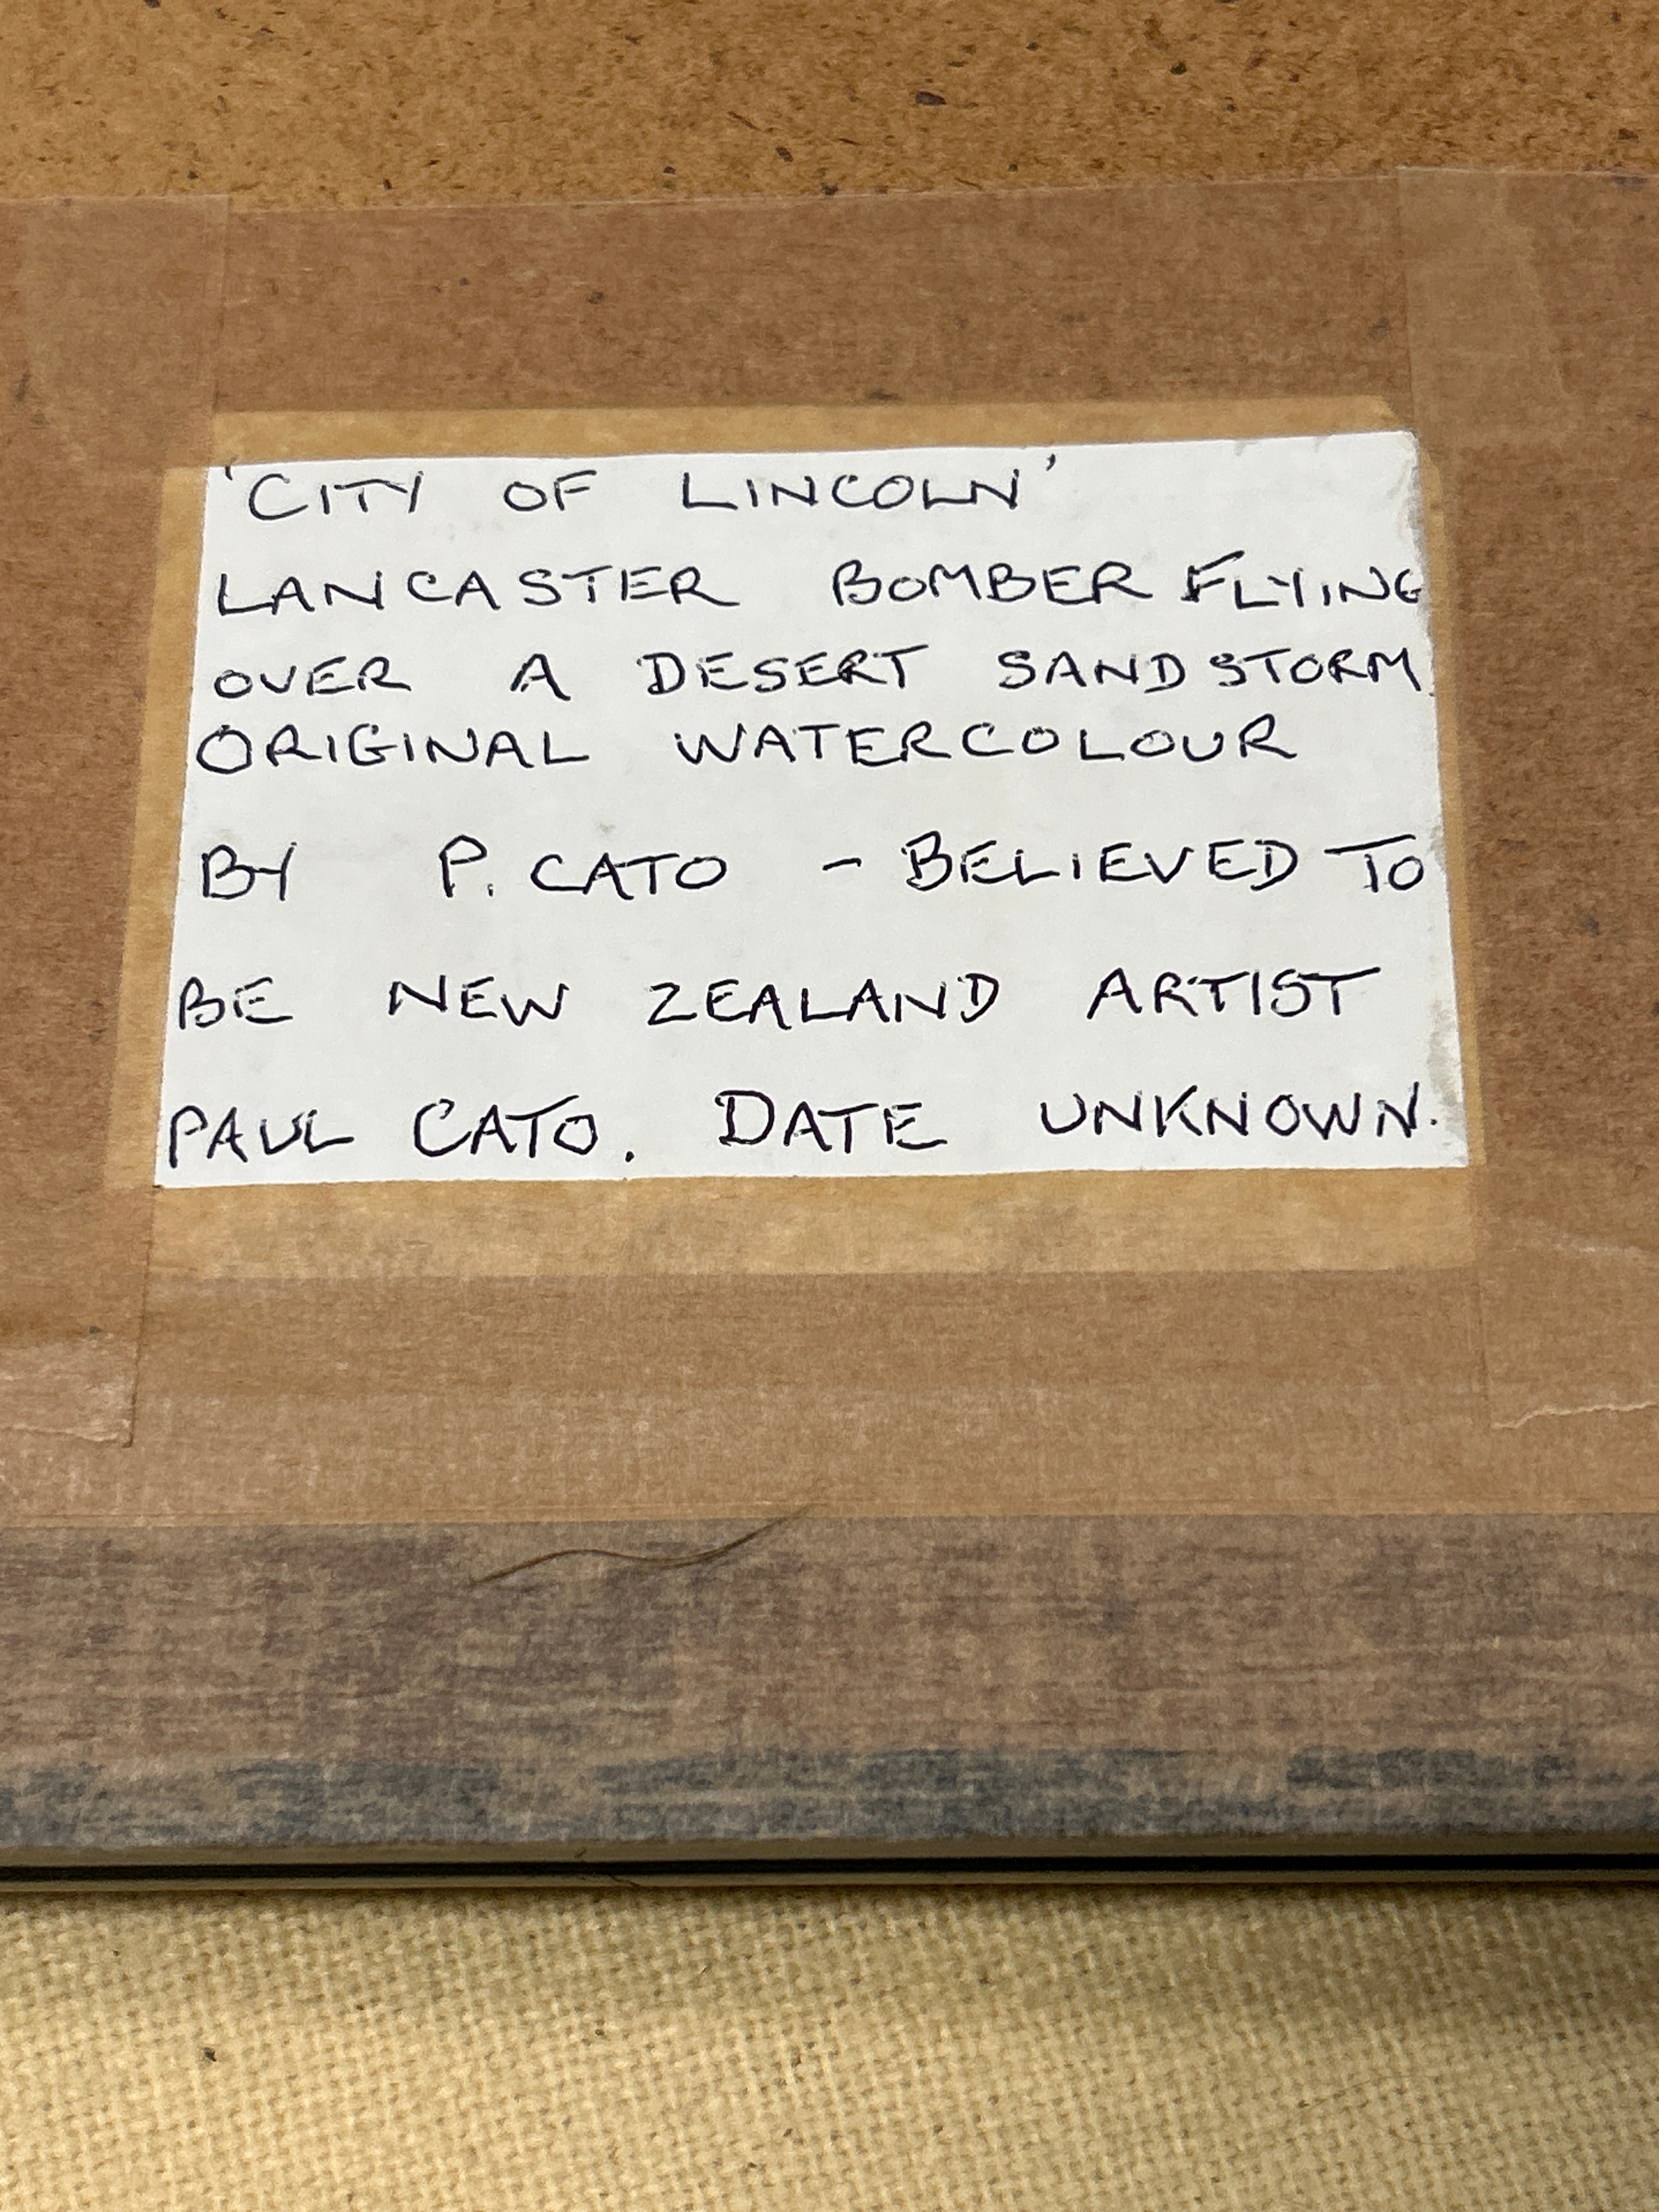 'CITY OF LINCOLN'
LANCASTER BOMBER FLYING
OVER A DESERT SANDSTORM
ORIGINAL WATERCOLOUR
BY P. CATO - BELIEVED TO
BE NEW ZEALAND ARTIST
PAUL CATO. DATE UNKNOWN.